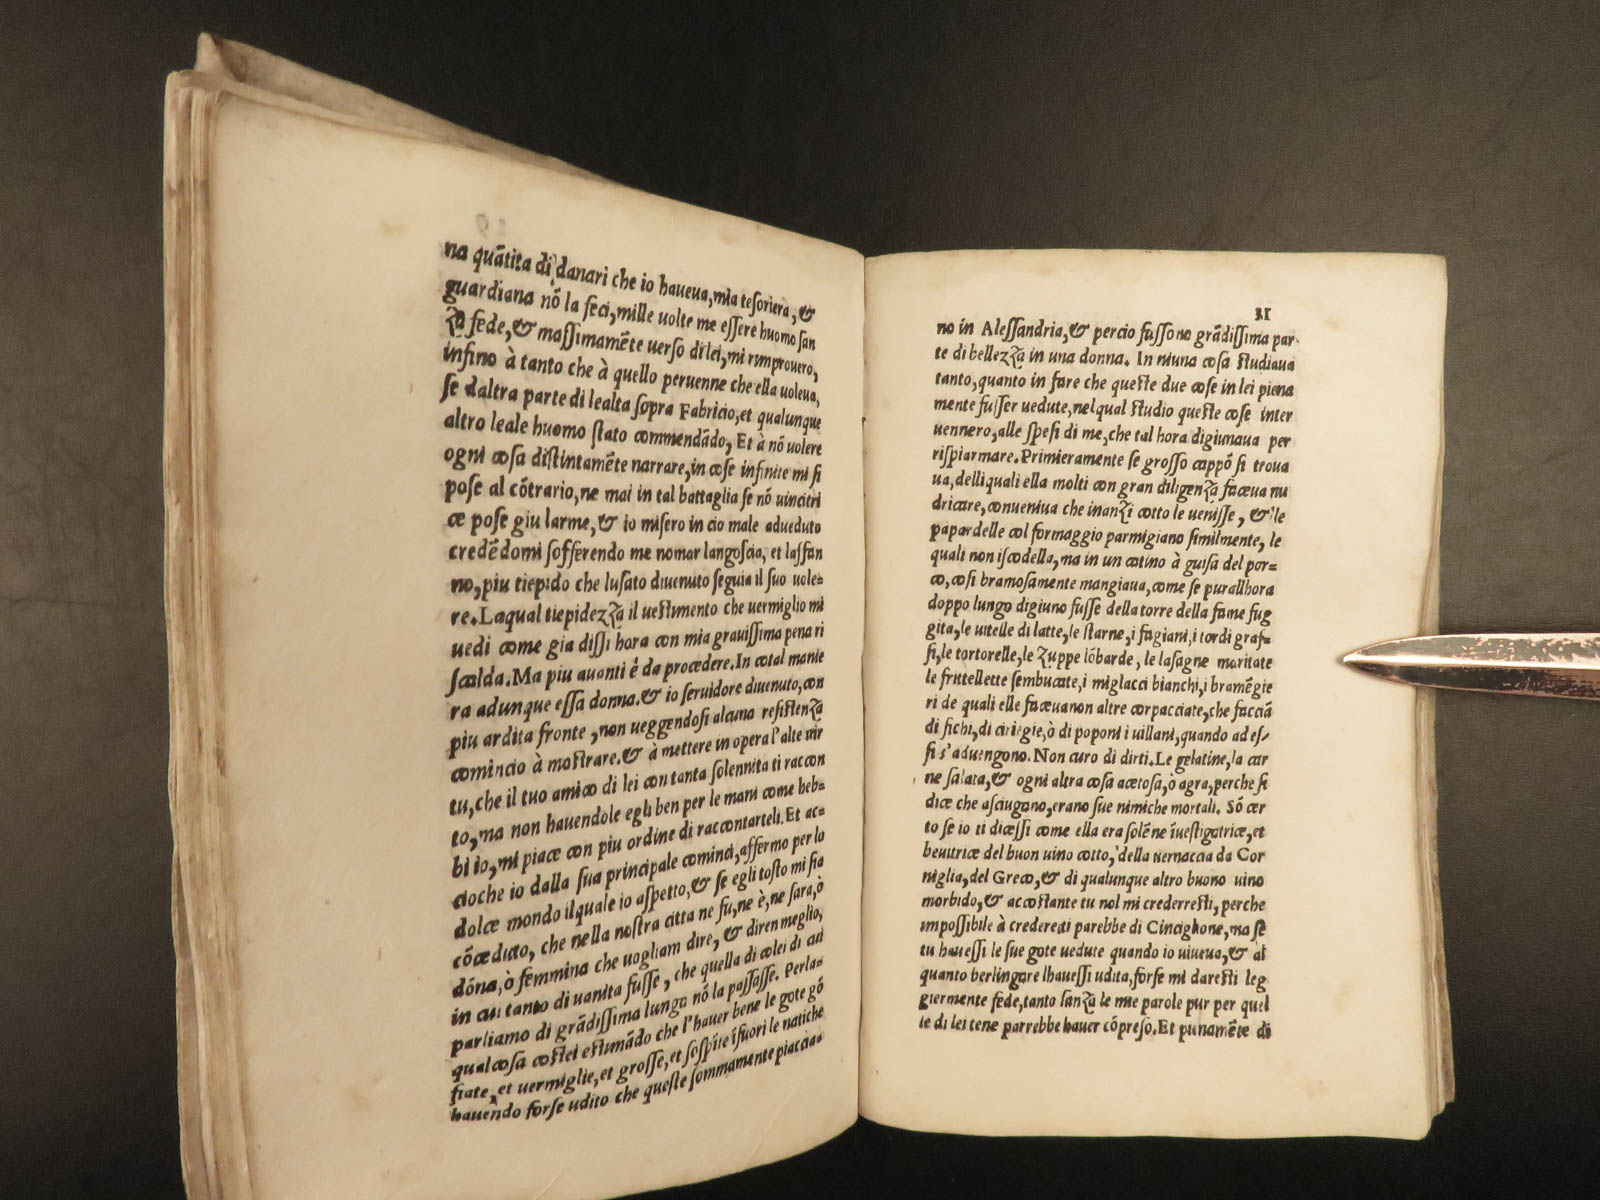 na quãtita di danari che io haueua, mia tesoriera, &
guardiana nõ la feci, mille uolte me essere huomo san
za fede, & massimamẽte uerso di lei, mi rimprouero,
infino à tanto che à quello peruenne che ella uoleua,
se daltra parte di lealta sopra Fabricio, et qualunque
altro leale huomo stato commendãdo, Et à nõ uolere
ogni cosa distintamẽte narrare, in cose infinite mi si
pose al cõtrario, ne mai in tal battaglia se nõ uincitri
ce pose giu larme, & io misero in cio male adueduto
credẽdomi sofferendo me nomar langoscia, et laffan
no, piu tiepido che lusato diuenuto seguia il suo uole=
re. Laqual tiepidezza il uestimento che uermiglio mi
uedi come gia dissi hora con mia grauissima pena ri
scalda. Ma piu auanti è da procedere. In cotal manie
ra adunque essa donna. & io seruidore diuenuto, con
piu ardita fronte, non ueggendosi alcuna resistenza
comincio à mostrare. & à mettere in opera l'alte uir
tu, che il tuo amico di lei con tanta solennita ti raccon
to, ma non hauendole egli ben per le mani come heb=
bi io, mi piace con piu ordine di raccontarteli. Et ac=
cioche io dalla sua principale cominci, affermo per lo
dolce mondo ilquale io aspetto, & se egli tosto mi sia
cõceduto, che nella nostra citta ne fu, ne è, ne sara, ò
dõna, ò femmina che uogliam dire, & diren meglio,
in cui tanto di uanita fusse, che quella di colei di cui
parliamo di grãdissima lungo nõ la passasse. Perla=
qualcosa costei estimãdo che l'hauer bene le gote gõ
fiate, et uermiglie, et grosse, et sospĩte ĩfuori le natiche
hauendo forse udito che queste sommamente piaccia=
31
no in Alessandria, & percio fussono grãdissima par=
te di bellezza in una donna. In niuna cosa studiaua
tanto, quanto in fare che queste due cose in lei piena
mente fusser uedute, nel qual studio queste cose inter
uennero, alle spesi di me, che tal hora digiunaua per
rispiarmare. Primieramente se grosso cappõ si troua
ua, delli quali ella molti con gran diligenza faceua nu
dricare, conueniua che inanzi cotto le uenisse, & le
papardelle col formaggio parmigiano similmente, le
quali non iscodella, ma in un catino à guisa del por=
co, cosi bramosamente mangiaua, come se purallhora
doppo lungo digiuno fusse della torre della fame fug
gita, le uitelle di latte, le starne, i fagiani, i tordi graf=
si, le tortorelle, le zuppe lõbarde, le lasagne maritate
le frittellette sembucate, i migliacci bianchi, i bramẽgie
ri de quali elle faceuanon altre corpacciate, che facciã
di fichi, di ciriegie, ò di poponi i uillani, quando ad es=
si s'aduengono. Non curo di dirti. Le gelatine, la car
ne salata, & ogni altra cosa acetosa, ò agra, perche si
dice che asciugano, erano sue nimiche mortali. Sõ cer
to se io ti dicessi come ella era solẽne ĩuestigatrice, et
beuitrice del buon uino cotto, della uernaccia da Cor
niglia, del Greco, & di qualunque altro buono uino
morbido, & accostante tu nol mi crederresti, perche
impossibile à crederesi parebbe di Cinciglione, ma se
tu hauessi le sue gote uedute quando io uiueua, & al
quanto berlingare lhauessi udita, forse mi daresti leg
giermente fede, tanto sanza le mie parole pur per quel
le di lei tene parrebbe hauer cõpreso. Et pienamẽte di